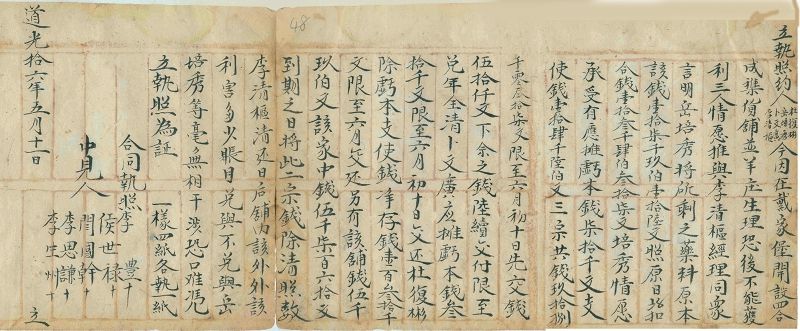 立執照約人杜復彬 岳培秀 卜文廣 李清樞今因在戴家僱開設四合
成雜貨舖並羊庄生理恐後不能獲
利三人情愿推與李清樞經理同衆
言明岳培秀將所剩之藥料原本
該錢壹拾柒千玖伯壹拾陸文照原日折扣
合錢壹拾叁千肆伯叁拾柒文培秀情愿
承受有應攤虧本錢柒拾千文支
使錢壹拾肆千陸伯文三宗共錢玖拾捌
千零叁拾柒文限至六月初十日先交錢
伍拾仟文下余之錢陸續交付限至
兑年全清卜文廣應攤虧本錢叁
拾千文限至六月初十日交还杜復彬
除虧本支使錢淨存錢壹百叁拾千
文限至六月 交还另有該舖錢伍千
玖伯文該家中錢伍千柒百六拾文
到期之日將此二宗錢除清照数
李清樞清还日后舖内該外外該
利害多少賬目兑與不兑與岳
培秀等毫無相干涉恐口难凭
立執照為証
一樣四紙各執一紙
合同執照李 豐十
中見人
侯世禄十
閆國幹十
李思謙十
李生州十
道光拾六年五月十一日
立
48